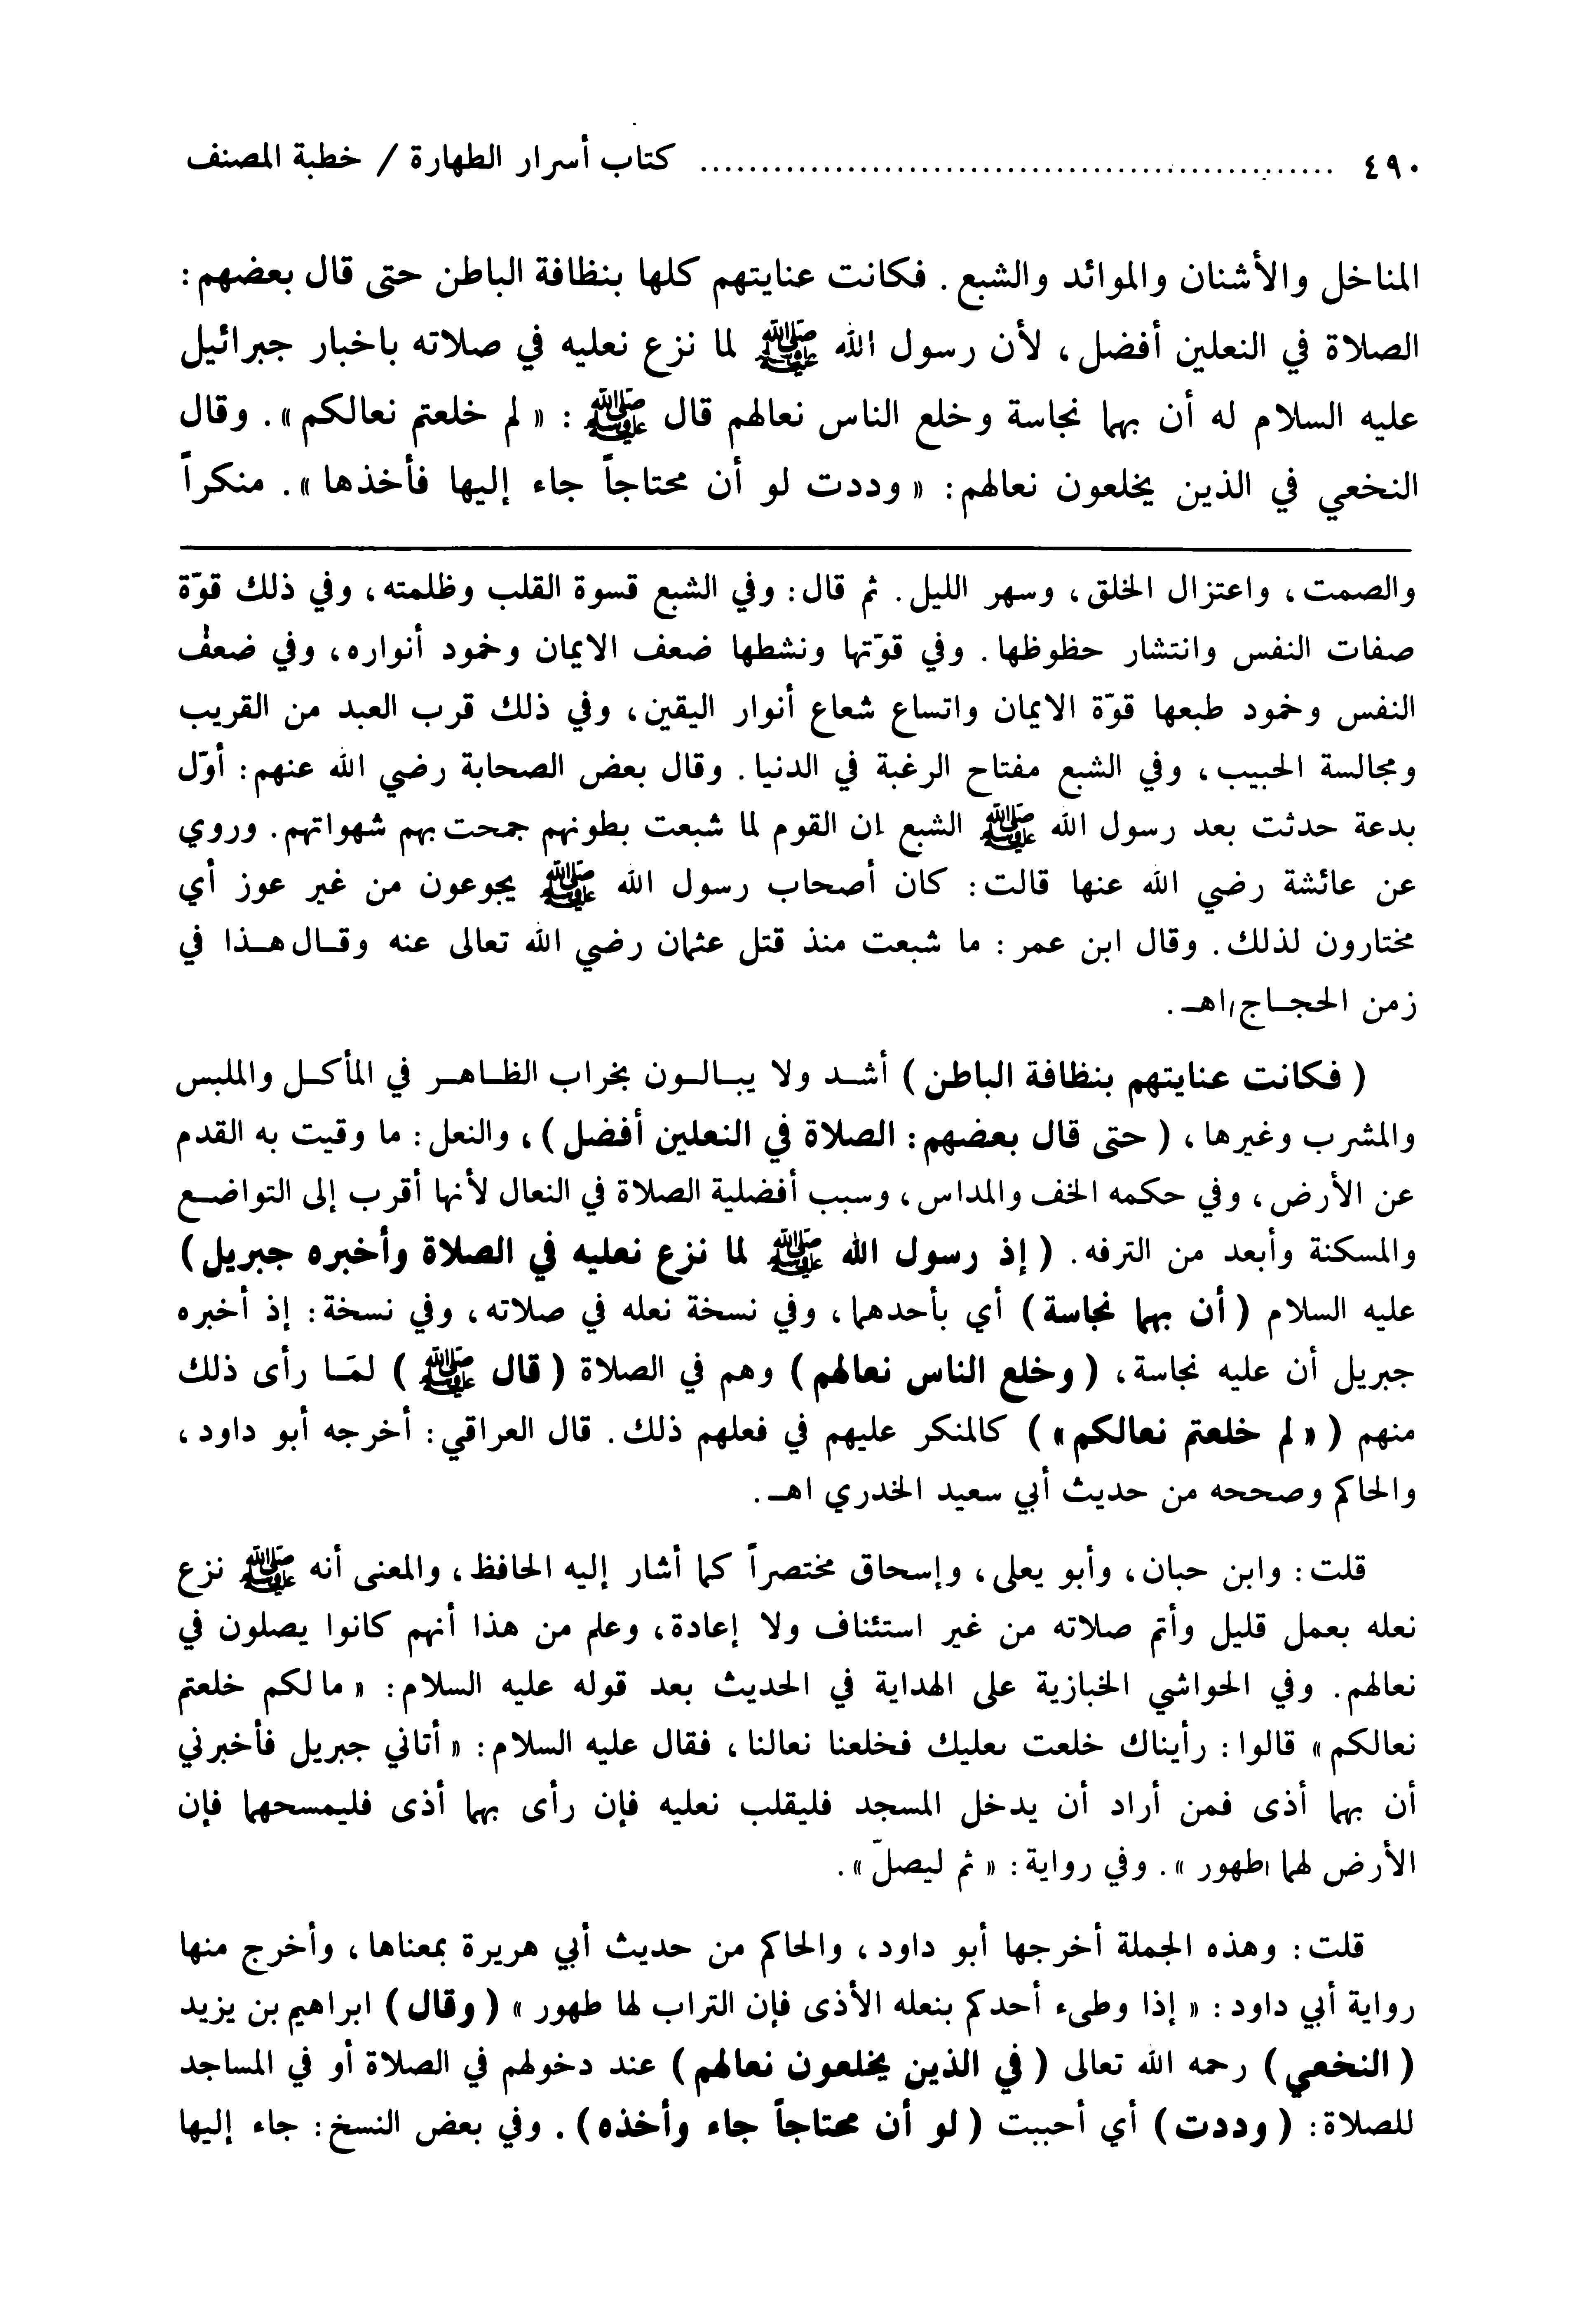 ٤٩٠ ........................................ كتاب أسرار الطهارة / خطبة المصنف
المناخل والأشنان والموائد والشبع. فكانت عنايتهم كلها بنظافة الباطن حتى قال بعضهم:
الصلاة في النعلين أفضل، لأن رسول الله ﷺ لما نزع نعليه في صلاته باخبار جبرائيل
عليه السلام له أن بهما نجاسة وخلع الناس نعالهم قال ﷺ : « لم خلعتم نعالكم ». وقال
النخعي في الذين يخلعون نعالهم: « وددت لو أن محتاجاً جاء إليها فأخذها ». منكراً
والصمت، واعتزال الخلق، وسهر الليل. ثم قال: وفي الشبع قسوة القلب وظلمته، وفي ذلك قوّة
صفات النفس وانتشار حظوظها. وفي قوّتها ونشطها ضعف الايمان وخمود أنواره، وفي ضعف
النفس وخمود طبعها قوّة الايمان واتساع شعاع أنوار اليقين، وفي ذلك قرب العبد من القريب
ومجالسة الحبيب، وفي الشبع مفتاح الرغبة في الدنيا. وقال بعض الصحابة رضي الله عنهم: أوّل
بدعة حدثت بعد رسول الله ﷺ الشبع إن القوم لما شبعت بطونهم جمحت بهم شهواتهم. وروي
عن عائشة رضي الله عنها قالت: كان أصحاب رسول الله ﷺ يجوعون من غير عوز أي
مختارون لذلك. وقال ابن عمر: ما شبعت منذ قتل عثمان رضي الله تعالى عنه وقـال هـذا في
زمن الحجـاج اهـ.
( فكانت عنايتهم بنظافة الباطن ) أشـد ولا يبـالـون بخراب الظـاهـر في المأكـل والملبس
والمشرب وغيرها، ( حتى قال بعضهم: الصلاة في النعلين أفضل )، والنعل: ما وقيت به القدم
عن الأرض، وفي حكمه الخف والمداس، وسبب أفضلية الصلاة في النعال لأنها أقرب إلى التواضـع
والمسكنة وأبعد من الترفه. ( إذ رسول الله ﷺ لما نزع نعليه في الصلاة وأخبره جبريل )
عليه السلام ( أن بهما نجاسة ) أي بأحدهما، وفي نسخة نعله في صلاته، وفي نسخة: إذ أخبره
جبريل أن عليه نجاسة، ( وخلع الناس نعالهم ) وهم في الصلاة ( قال ﷺ ) لمّـا رأى ذلك
منهم ( « لم خلعتم نعالكم » ) كالمنكر عليهم في فعلهم ذلك. قال العراقي: أخرجه أبو داود،
والحاكم وصححه من حديث أبي سعيد الخدري اهـ.
قلت: وابن حبان، وأبو يعلى، وإسحاق مختصراً كما أشار إليه الحافظ، والمعنى أنه ﷺ نزع
نعله بعمل قليل وأتم صلاته من غير استئناف ولا إعادة، وعلم من هذا أنهم كانوا يصلون في
نعالهم. وفي الحواشي الخبازية على الهداية في الحديث بعد قوله عليه السلام: « ما لكم خلعتم
نعالكم » قالوا: رأيناك خلعت نعليك فخلعنا نعالنا، فقال عليه السلام: « أتاني جبريل فأخبرني
أن بهما أذى فمن أراد أن يدخل المسجد فليقلب نعليه فإن رأى بهما أذى فليمسحهما فإن
الأرض لهما طهور ». وفي رواية: « ثم ليصلّ ».
قلت: وهذه الجملة أخرجها أبو داود، والحاكم من حديث أبي هريرة بمعناها، وأخرج منها
رواية أبي داود: « إذا وطىء أحدكم بنعله الأذى فإن التراب لها طهور » ( وقال ) ابراهيم بن يزيد
( النخعي ) رحمه الله تعالى ( في الذين يخلعون نعالهم ) عند دخولهم في الصلاة أو في المساجد
للصلاة: ( وددت ) أي أحببت ( لو أن محتاجاً جاء وأخذه ). وفي بعض النسخ: جاء إليها